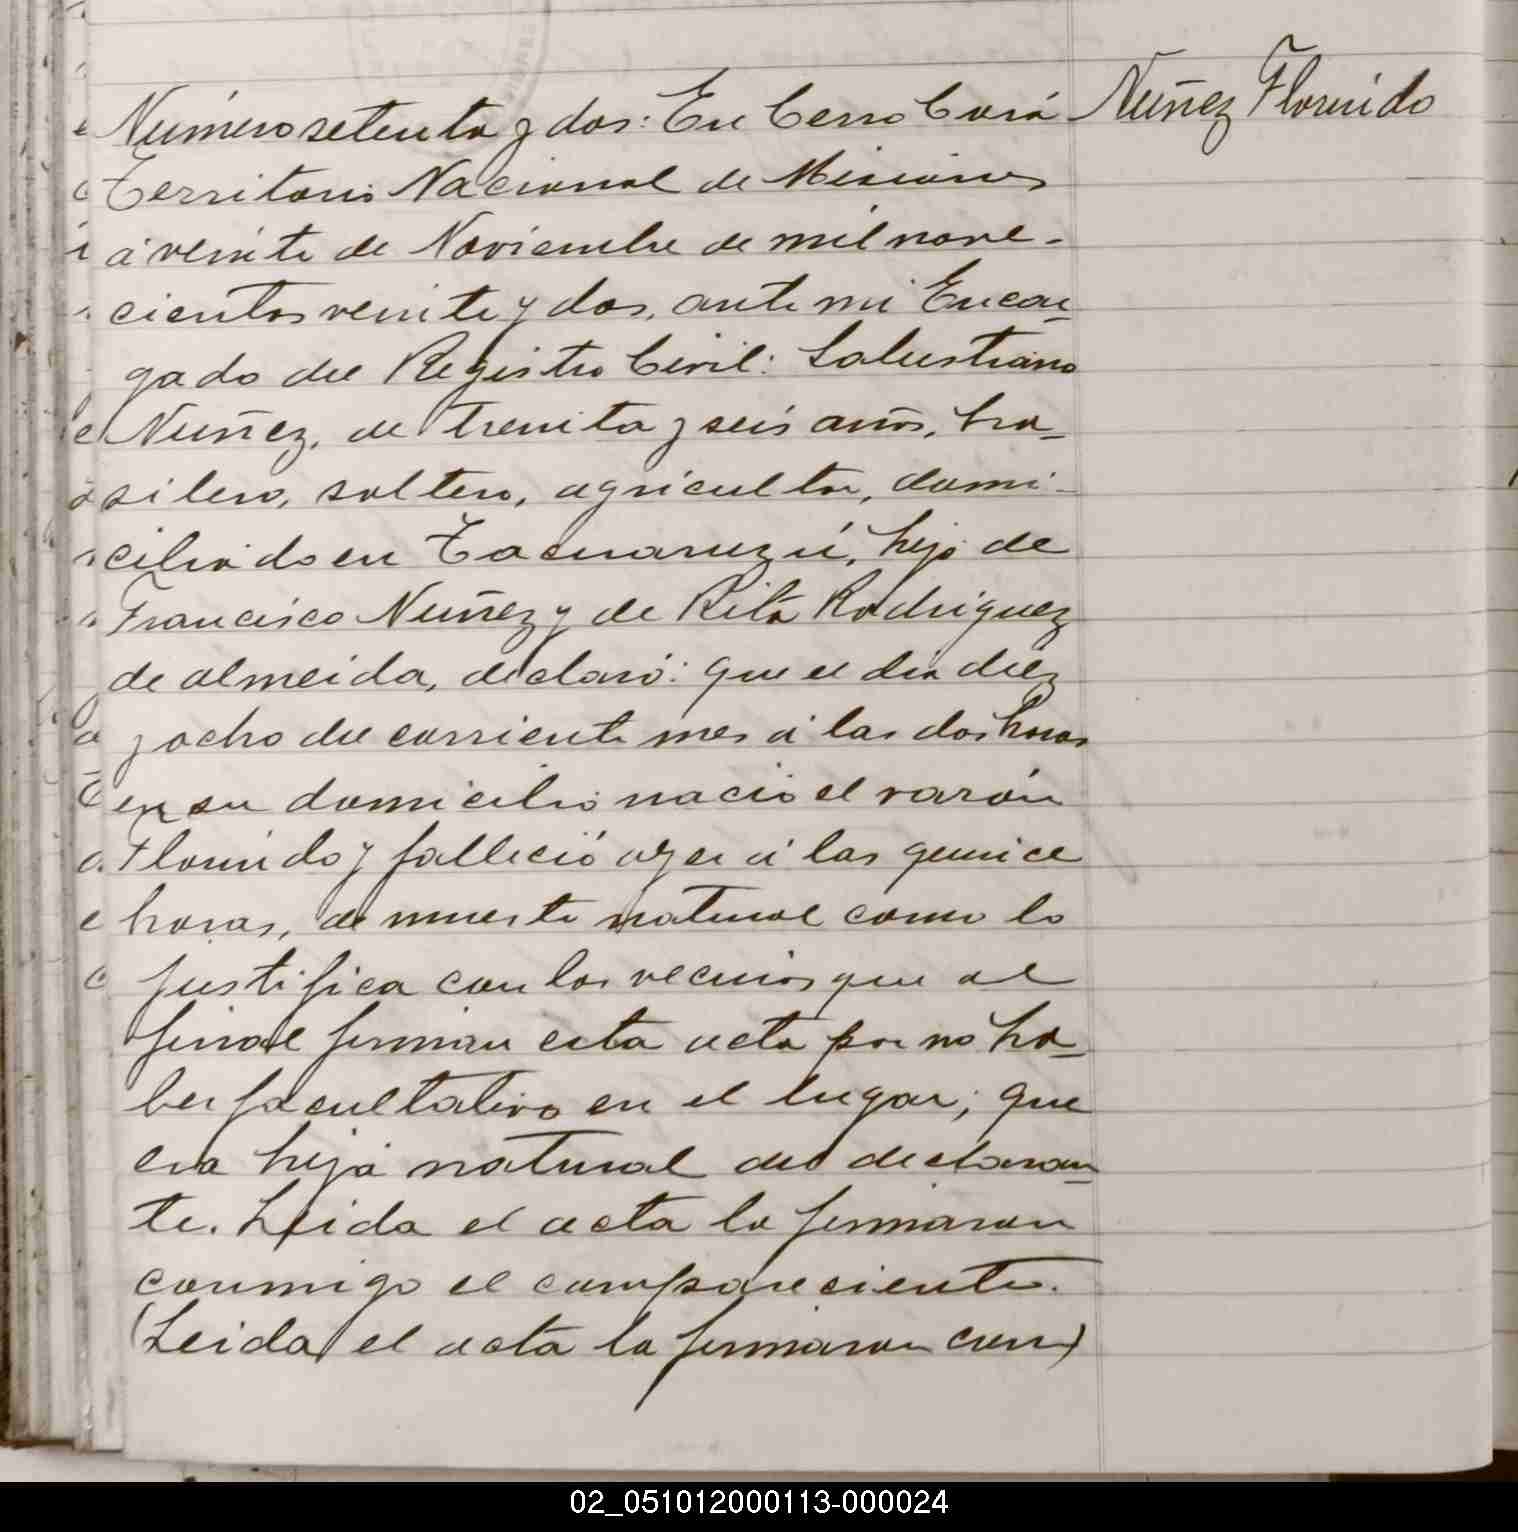 Número setenta y dos: En Cerro Corá
Núñez Florindo
Territorio Nacional de Misiones
á veinte de Noviembre de mil nove-
cientos veinte y dos, ante mi Encar-
gado del Registro Civil: Salustiano
Nuñez, de treinta y seis años, bra-
silero, soltero, agricultor, domi-
ciliado en Tacuaruzú, hijo de
Francisco Nuñez y de Rita Rodriguez
de almeida, declaró: que el dia diez
y ocho del corriente mes á las dos horas
en su domicilio nació el varón
Florindo y falleció ayer á las quince
horas, de muerte natural como lo
justifica con los vecinos que al
final firman esta acta por no ha-
ber facultativo en el lugar; que
era hijo natural del declaran-
te. Leida el acta la firmaron
conmigo el compareciente.
(Leida el acta la firmaron con)
02_051012000113-000024